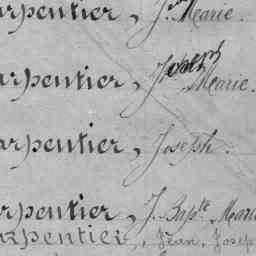 arpentier, J.ⁿ Marie.
arpentier, Joseph Marie.
arpentier, Joseph.
arpentier, J. Bapte Marie
arpentier, Jean, Josep